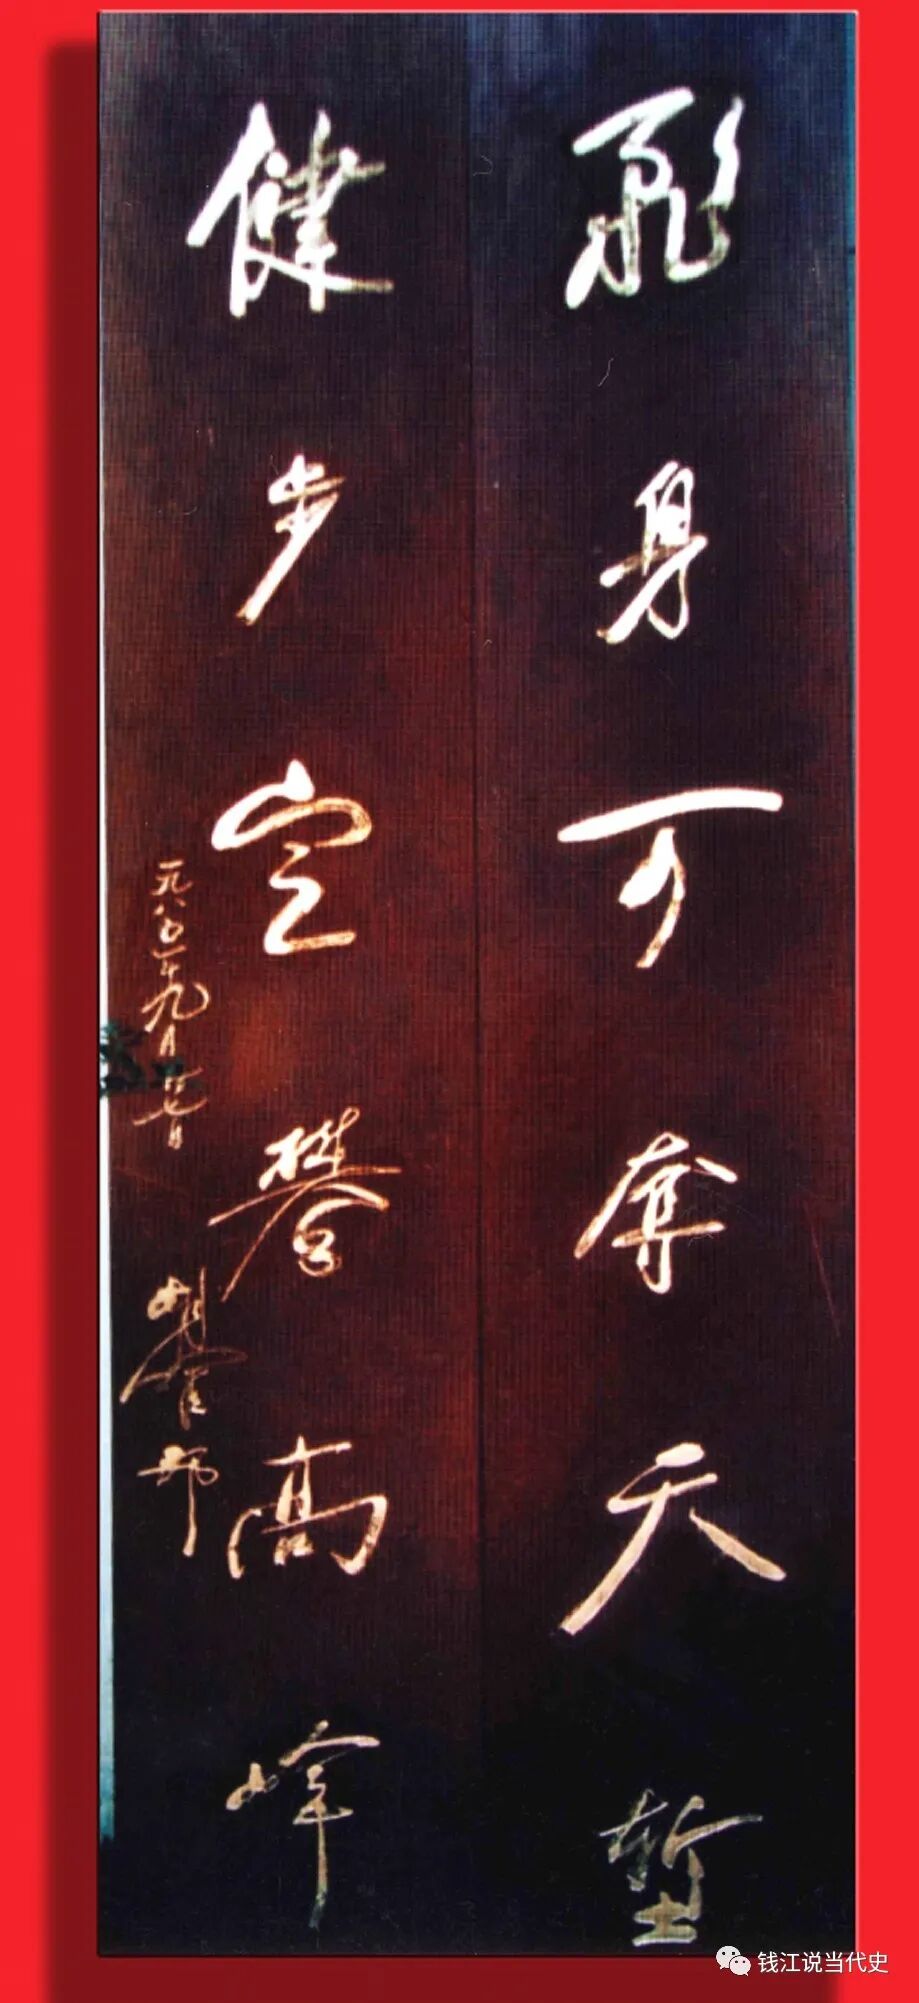 飛身可夺天堑
健步定攀高峰
一九八 年九月廿七日
胡耀邦
钱江说当代史